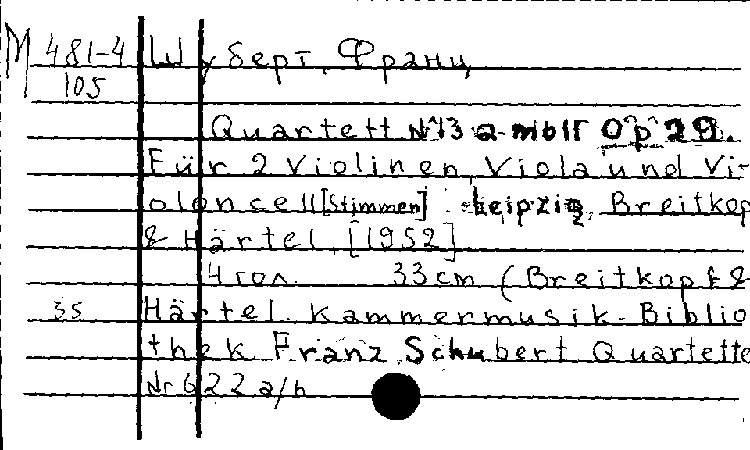 М 481-4 Шуберт, Франц
105
Quartett №13 a-moll Op 29.
Für 2 Violinen, Viola und Vi-
oloncell [Stimmen] Leipzig, Breitkop
& Härtel [1952]
4 гол. 33 cm (Breitkopf &
35 Härtel. Kammermusik-Biblio
thek Franz Schubert Quartette
Nr 622 a/h